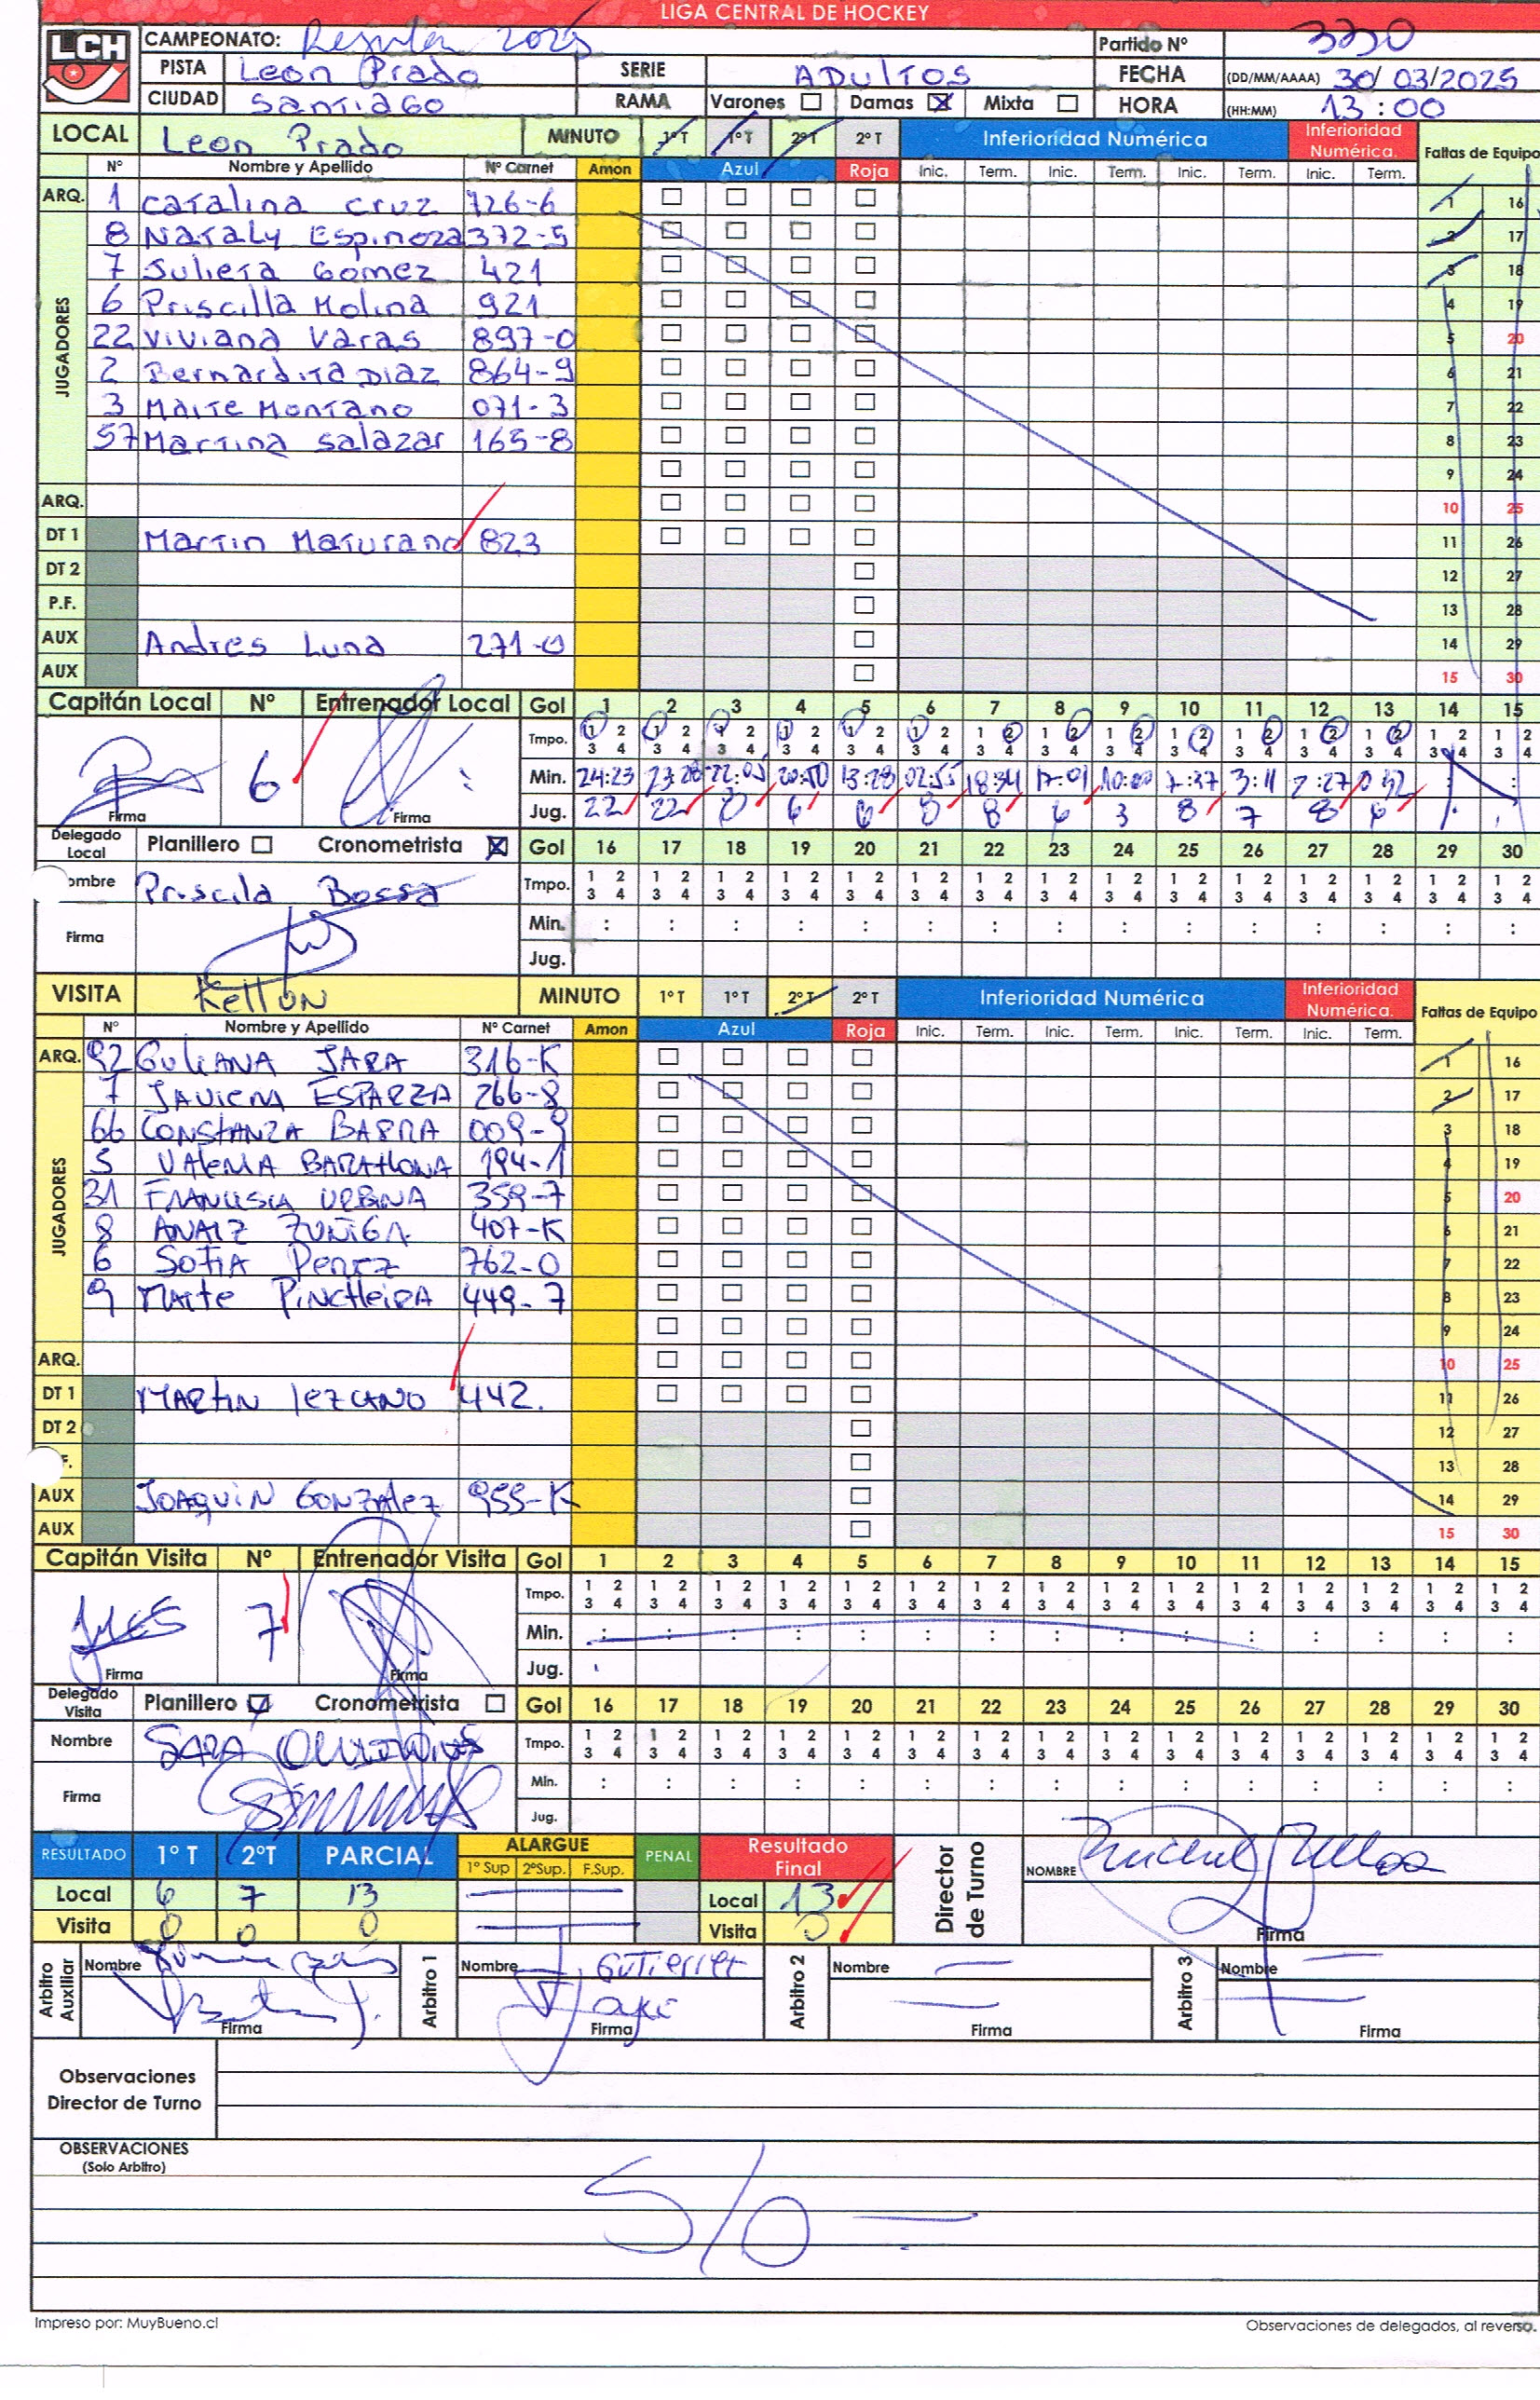 LIGA CENTRAL DE HOCKEY
LCH
CAMPEONATO: Regular 2025 Partido Nº 3330
PISTA Leon Prado SERIE ADULTOS FECHA (DD/MM/AAAA) 30/03/2025
CIUDAD Santiago RAMA Varones Damas Mixta HORA (HH:MM) 13:00
LOCAL Leon Prado MINUTO 1º T 1º T 2º T 2º T Inferioridad Numérica Inferioridad Numérica. Faltas de Equipo
Nº Nombre y Apellido Nº Carnet Amon Azul Roja Inic. Term. Inic. Term. Inic. Term. Inic. Term.
ARQ. 1 Catalina Cruz 726-6 1 16
JUGADORES
8 Nataly Espinoza 372-5 2 17
7 Julieta Gomez 421 3 18
6 Priscilla Molina 921 4 19
22 Viviana Varas 897-0 5 20
2 Bernardita Diaz 864-9 6 21
3 Maite Montano 071-3 7 22
57 Martina Salazar 165-8 8 23
9 24
ARQ. 10 25
DT 1 Martin Maturano 823 11 26
DT 2 12 27
P.F. 13 28
AUX Andres Luna 271-0 14 29
AUX 15 30
Capitán Local Nº Entrenador Local Gol 1 2 3 4 5 6 7 8 9 10 11 12 13 14 15
Tmpo. 1 2 1 2 1 2 1 2 1 2 1 2 1 2 1 2 1 2 1 2 1 2 1 2 1 2 1 2 1 2
3 4 3 4 3 4 3 4 3 4 3 4 3 4 3 4 3 4 3 4 3 4 3 4 3 4 3 4 3 4
6 Min. 24:23 23:28 22:05 20:50 13:28 02:55 18:34 17:01 10:00 7:37 3:11 2:27 0:52
Firma Firma Jug. 22 22 6 6 8 8 6 3 8 7 8 6
Delegado Local Planillero Cronometrista Gol 16 17 18 19 20 21 22 23 24 25 26 27 28 29 30
ombre Priscila Bossa Tmpo. 1 2 1 2 1 2 1 2 1 2 1 2 1 2 1 2 1 2 1 2 1 2 1 2 1 2 1 2 1 2
3 4 3 4 3 4 3 4 3 4 3 4 3 4 3 4 3 4 3 4 3 4 3 4 3 4 3 4 3 4
Firma Min. : : : : : : : : : : : : : : :
Jug.
VISITA Kelton MINUTO 1º T 1º T 2º T 2º T Inferioridad Numérica Inferioridad Numérica. Faltas de Equipo
Nº Nombre y Apellido Nº Carnet Amon Azul Roja Inic. Term. Inic. Term. Inic. Term. Inic. Term.
ARQ. 92 GULIANA JARA 316-K 1 16
JUGADORES
7 JAVIERA ESPARZA 266-8 2 17
66 CONSTANZA BARRA 009-9 3 18
5 VALERIA BARAHONA 194-1 4 19
31 FRANCISCA URBINA 359-7 5 20
8 ANAIZ ZUÑIGA 407-K 6 21
6 SOFIA PEREZ 762-0 7 22
9 MAITE PINCHEIRA 449-7 8 23
9 24
ARQ. 10 25
DT 1 MARTIN LEZCANO 442. 11 26
DT 2 12 27
F. 13 28
AUX JOAQUIN GONZALEZ 955-K 14 29
AUX 15 30
Capitán Visita Nº Entrenador Visita Gol 1 2 3 4 5 6 7 8 9 10 11 12 13 14 15
Tmpo. 1 2 1 2 1 2 1 2 1 2 1 2 1 2 1 2 1 2 1 2 1 2 1 2 1 2 1 2 1 2
3 4 3 4 3 4 3 4 3 4 3 4 3 4 3 4 3 4 3 4 3 4 3 4 3 4 3 4 3 4
7 Min. : : : : : : : : : : : : : : :
Firma Firma Jug.
Delegado Visita Planillero Cronometrista Gol 16 17 18 19 20 21 22 23 24 25 26 27 28 29 30
Nombre SARA Tmpo. 1 2 1 2 1 2 1 2 1 2 1 2 1 2 1 2 1 2 1 2 1 2 1 2 1 2 1 2 1 2
3 4 3 4 3 4 3 4 3 4 3 4 3 4 3 4 3 4 3 4 3 4 3 4 3 4 3 4 3 4
Firma Min. : : : : : : : : : : : : : : :
Jug.
RESULTADO 1º T 2ºT PARCIAL ALARGUE PENAL Resultado Final Director de Turno
1º Sup 2ºSup. F.Sup. NOMBRE
Local 6 7 13 Local 13
Visita 0 0 0 Visita 0 Firma
Arbitro Auxiliar Nombre Arbitro 1 Nombre J. Gutierrez Arbitro 2 Nombre — Arbitro 3 Nombre —
Firma Firma Firma Firma
Observaciones
Director de Turno
OBSERVACIONES
(Solo Arbitro)
S/O
Impreso por: MuyBueno.cl Observaciones de delegados, al reverso.